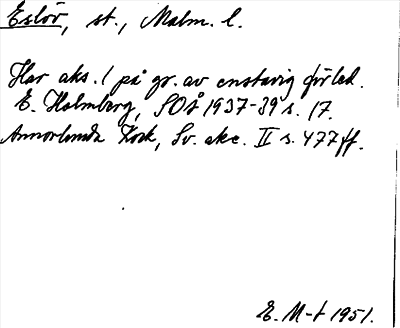 Eslöv, st., Malm. l.
Har aks. 1 på gr. av enstavig förled.
E. Holmberg, SOÅ 1937-39 s. 17.
Annorlunda Kock, Sv. akc. II s. 477 ff.
E. M-t 1951.